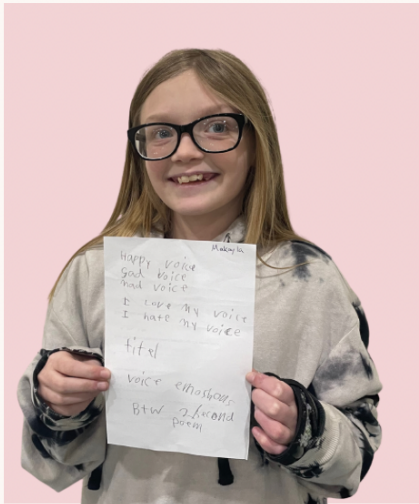 Makayla
Happy voice
Sad voice
mad voice
I love my voice
I hate my voice
titel
voice emoshons
BtW 2hecond
poem